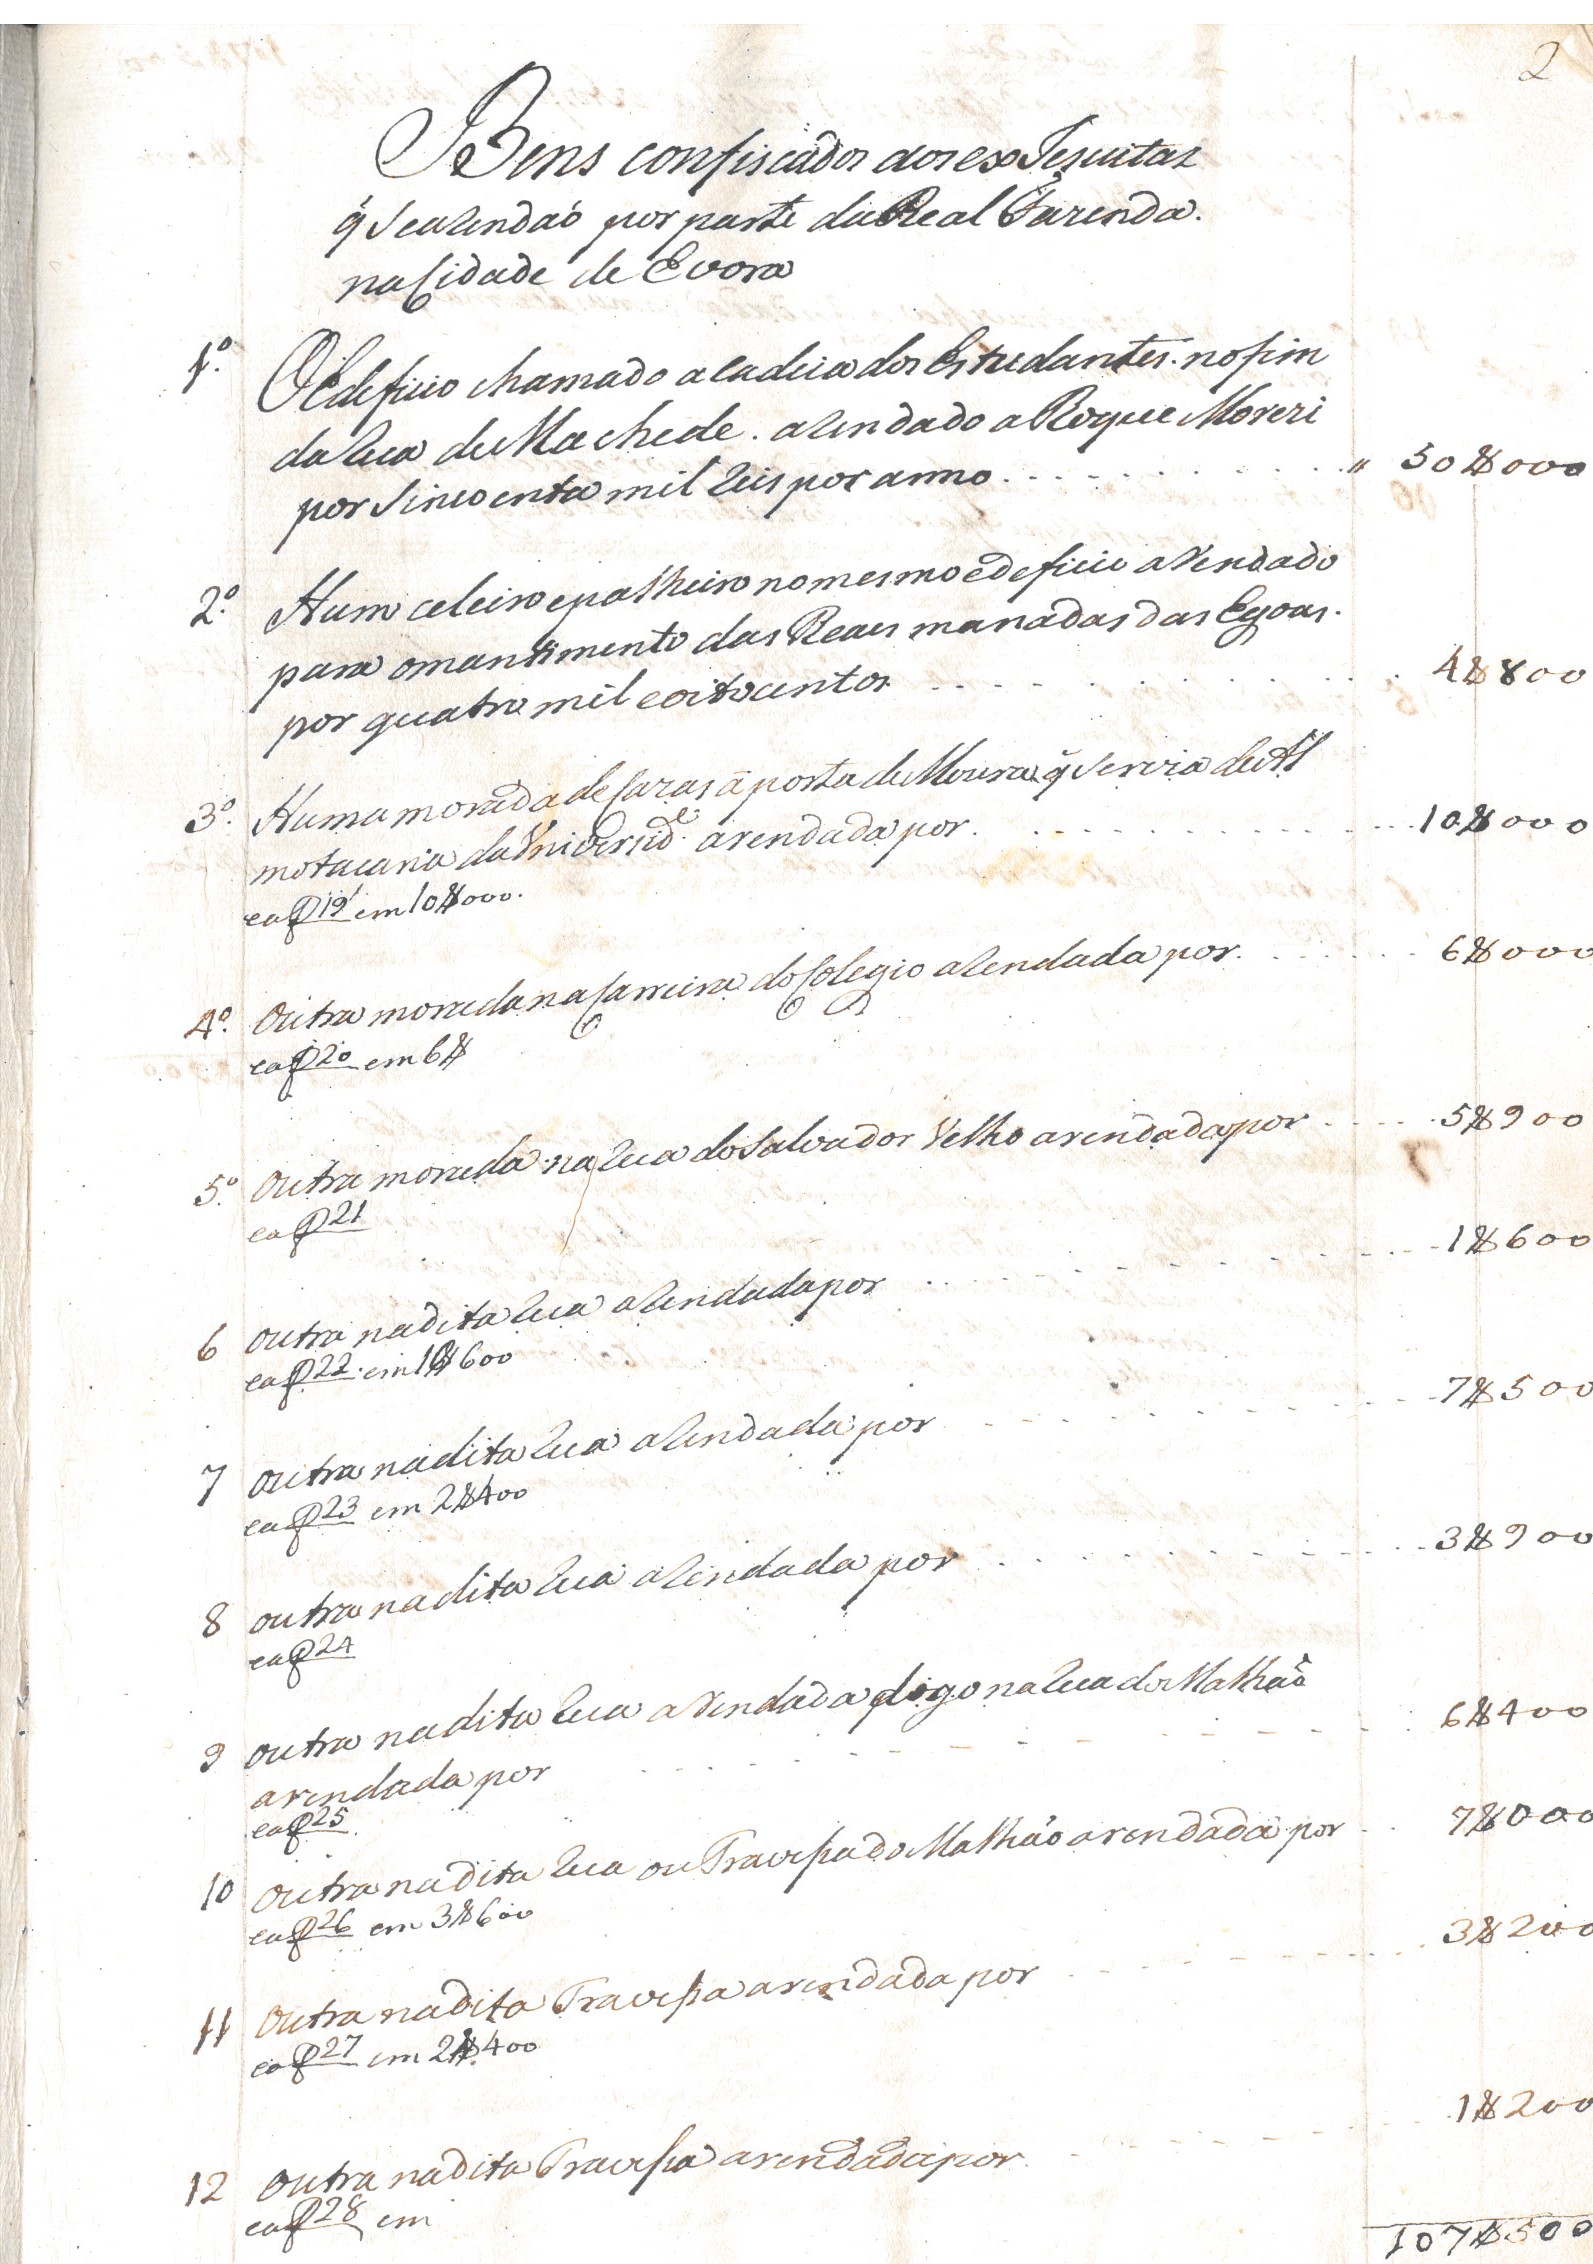 2
Bens confiscados aos ex Jesuitas
q̃ Se arendaõ por parte da Real Fazenda.
na Cidade de Evora
1º. O Edeficio chamado a cadeia dos Estudantes. no fim
da Rua de Machede. arendado a Roque Moreri
por Sincoenta mil Reis por anno . . . . . . . . . . . " 50$000
2º. Hum celeiro e palheiro no mesmo edeficio arendado
para o mantimento das Reaes manadas das Egoas.
por quatro mil e oitocentos . . . . . . . . . . . 4$800
3º. Huma morada de Cazas á porta de Moura q̃ Servia de Al
motacaria da Universid.e arendada por . . . . . . . . . . . 10$000
a f 19 em 10$000.
4º. Outra morada na Carreira do Colegio arendada por . . . . . . 6$000
a f 20 em 6$
5º Outra morada na Rua do Salvador Velho arendada por . . . . . 5$900
a f 21
6 Outra na dita Rua arendada por . . . . . . . . . . . 1$600
a f 22. em 1$600
7 Outra na dita Rua arendada por . . . . . . . . . . . 7$500
a f 23 em 2$400
8 outra na dita Rua arendada por . . . . . . . . . . . 3$900
a f 24
9 outra na dita Rua arendada digo na Rua do Malhaõ
arendada por . . . . . . . . . . . 6$400
a f 25
10 Outra na dita Rua ou Travessa do Malhaõ arendada por . . 7$000
a f 26 em 3$600
11 Outra na dita Travessa arendada por . . . . . . . . 3$200
a f 27 em 2$400
12 Outra na dita Travessa arendada por . . . . . . . . 1$200
a f 28 em
107$500